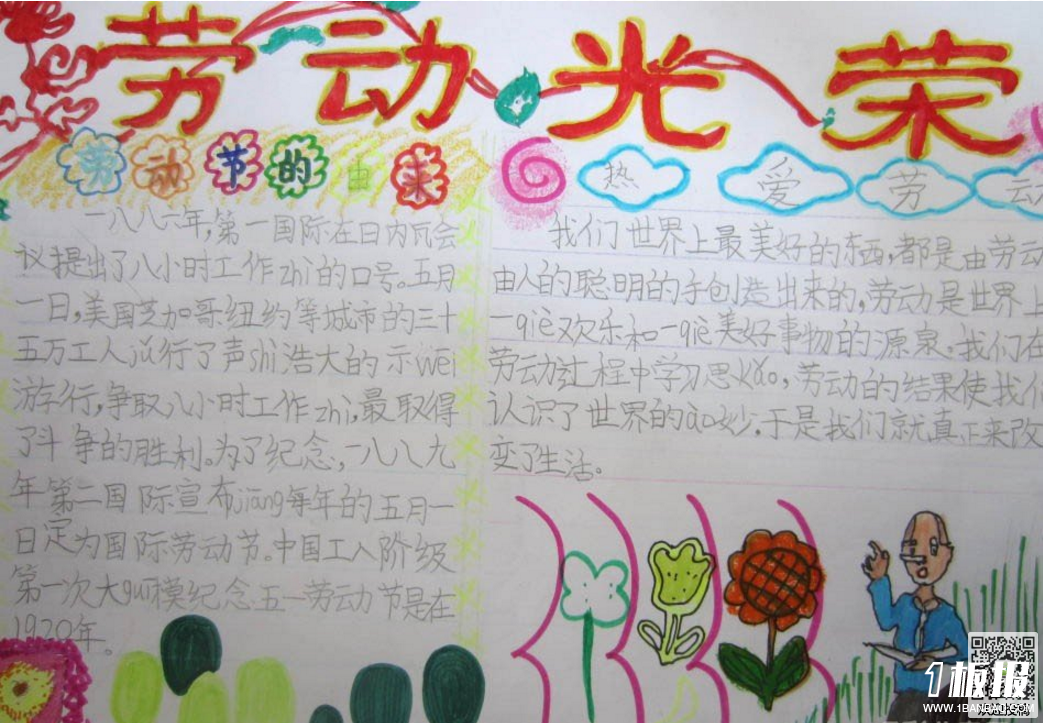 劳动光荣
劳动节的由来
一八八六年，第一国际在日内瓦会
议提出了八小时工作zhì的口号。五月
一日，美国芝加哥纽约等城市的三十
五万工人jǔ行了声shì浩大的示wēi
游行，争取八小时工作zhì，最取得
了斗争的胜利。为了纪念，一八八九
年第二国际宣布jiāng每年的五月一
日定为国际劳动节。中国工人阶级
第一次大guī模纪念五一劳动节是在
1920年。
热爱劳动
我们世界上最美好的东西，都是由劳动
由人的聪明的手创造出来的，劳动是世界上
一qiè欢乐和一qiè美好事物的源泉。我们在
劳动过程中学习思kǎo，劳动的结果使我们
认识了世界的ào妙，于是我们就真正来改
变了生活。
1板报
WWW.1BANBAO.COM